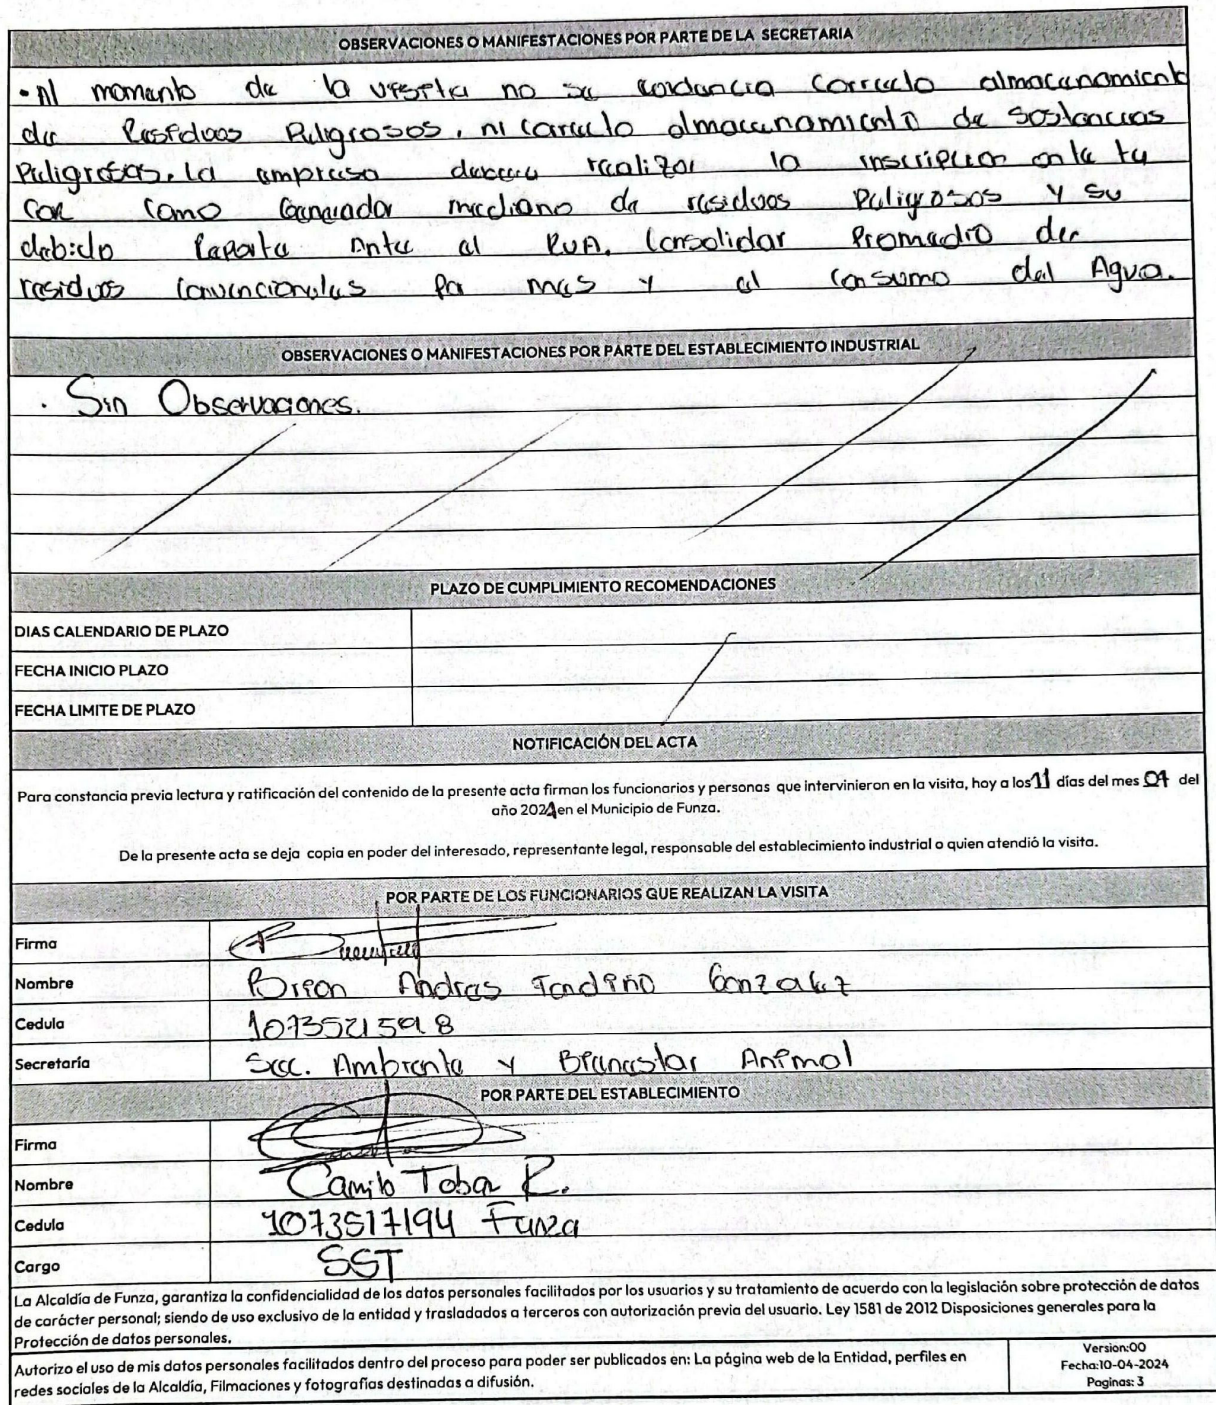 OBSERVACIONES O MANIFESTACIONES POR PARTE DE LA SECRETARIA
• Al momento de la visita no se evidencia correcto almacenamiento
de Residuos Peligrosos, ni correcto almacenamiento de sostancias
Peligrosas. La empresa debera realizar la inscripcion ante la
CAR como Generador mediano de residuos Peligrosos y su
debido Reporte Ante el RUA. Consolidar Promedio de
residuos convencionales por mes y el consumo del Agua.
OBSERVACIONES O MANIFESTACIONES POR PARTE DEL ESTABLECIMIENTO INDUSTRIAL
. Sin Observaciones.
PLAZO DE CUMPLIMIENTO RECOMENDACIONES
DIAS CALENDARIO DE PLAZO
FECHA INICIO PLAZO
FECHA LIMITE DE PLAZO
NOTIFICACIÓN DEL ACTA
Para constancia previa lectura y ratificación del contenido de la presente acta firman los funcionarios y personas que intervinieron en la visita, hoy a los 11 días del mes del
año 2024 en el Municipio de Funza.
De la presente acta se deja copia en poder del interesado, representante legal, responsable del establecimiento industrial o quien atendió la visita.
POR PARTE DE LOS FUNCIONARIOS QUE REALIZAN LA VISITA
Firma
Nombre Brian Andres Fandiño Gonzalez
Cedula 1073521598
Secretaría Sec. Ambiente y Bienestar Animal
POR PARTE DEL ESTABLECIMIENTO
Firma
Nombre Camilo Tobar R.
Cedula 1073517194 Funza
Cargo SST
La Alcaldía de Funza, garantiza la confidencialidad de los datos personales facilitados por los usuarios y su tratamiento de acuerdo con la legislación sobre protección de datos
de carácter personal; siendo de uso exclusivo de la entidad y trasladados a terceros con autorización previa del usuario. Ley 1581 de 2012 Disposiciones generales para la
Protección de datos personales.
Autorizo el uso de mis datos personales facilitados dentro del proceso para poder ser publicados en: La página web de la Entidad, perfiles en
redes sociales de la Alcaldía, Filmaciones y fotografías destinadas a difusión.
Version:00
Fecha:10-04-2024
Paginas: 3